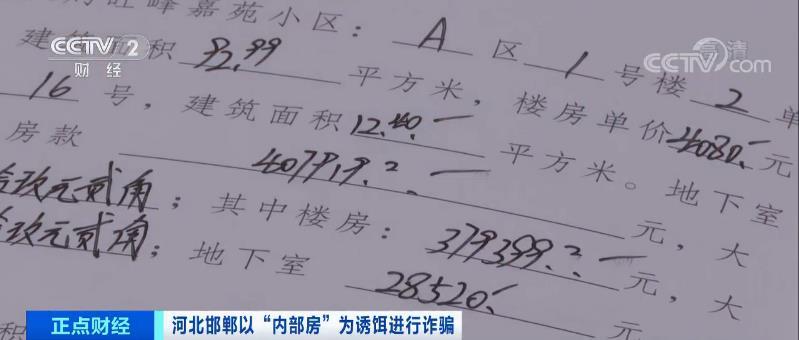 CCTV 2
财经
高清
CCTV.com
旺峰嘉苑小区：A区1号楼2单
建筑面积92.99平方米，楼房单价4080.元
16号，建筑面积12.40.一平方米。地下室
房款407919.2.一元，大
拾玖元贰角；其中楼房：379399.2.一元，大
拾玖元贰角；地下室28520.
积
正点财经
河北邯郸以“内部房”为诱饵进行诈骗